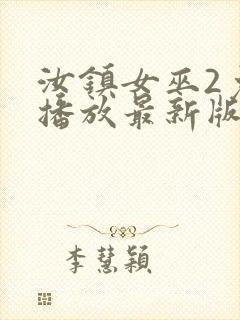 汝鎮女巫2
播放最新版
李慧穎